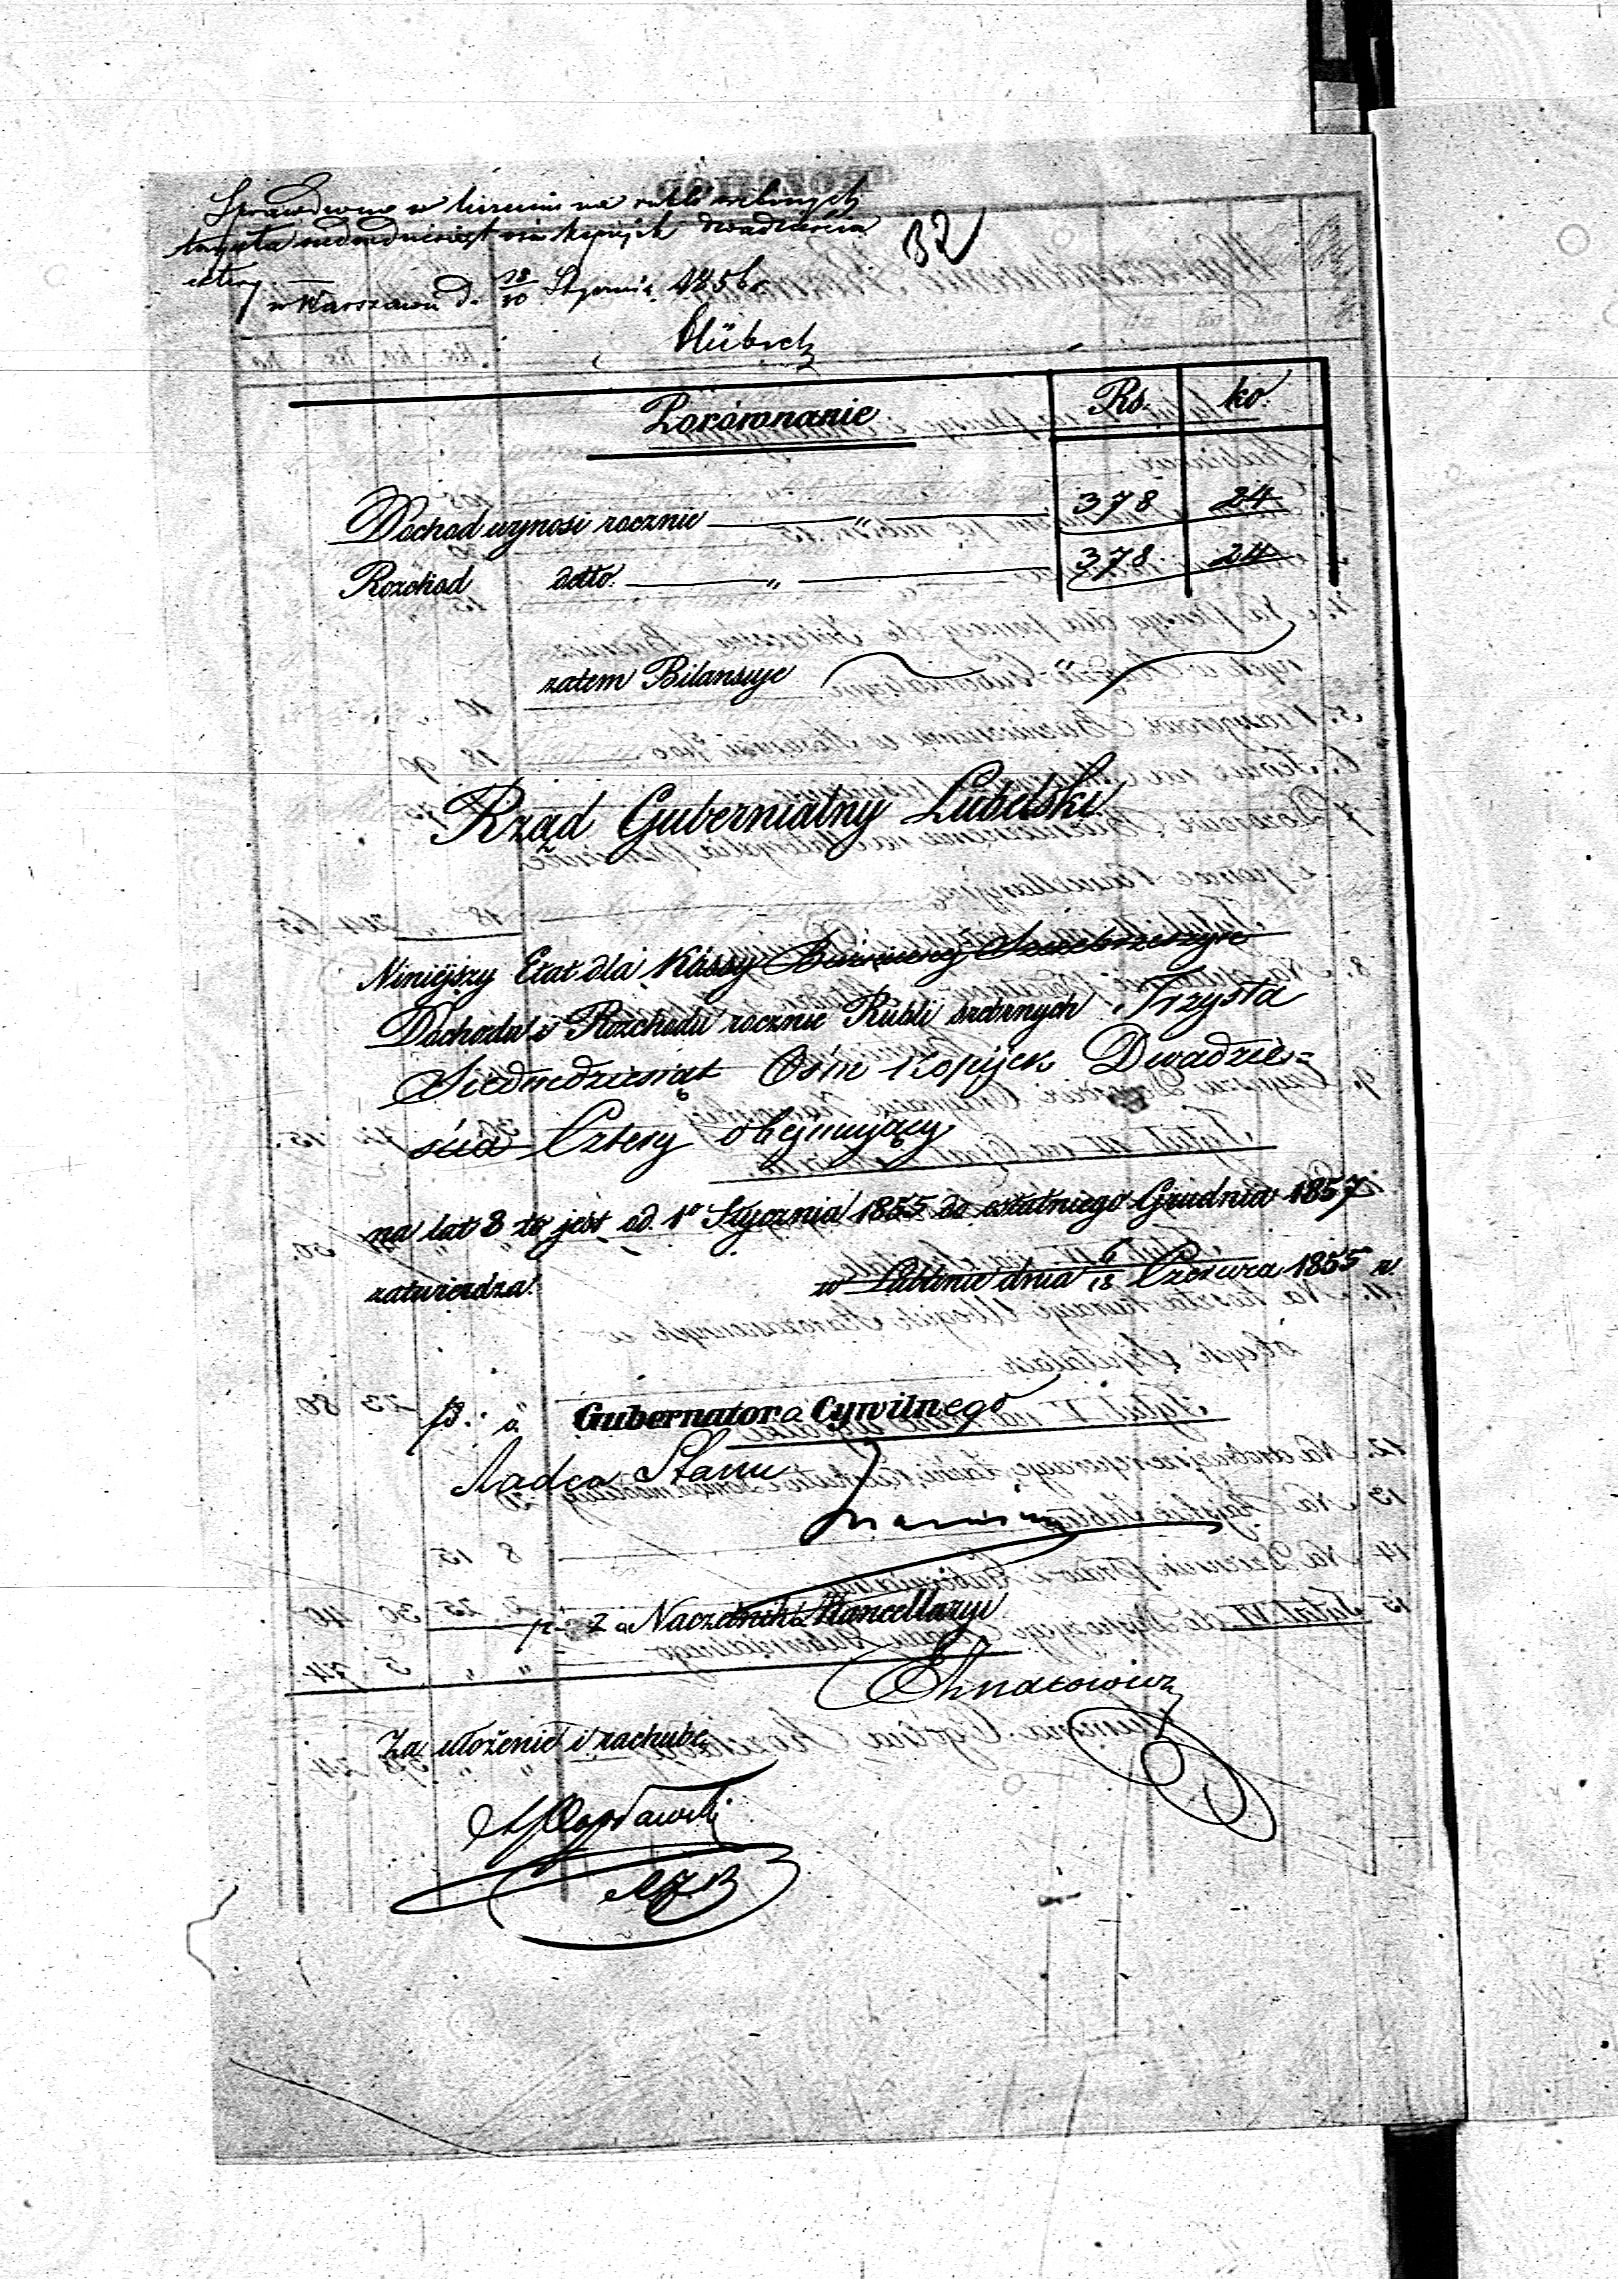 Sprawdzono w                na rubli srebrnych
trzysta siedmdziesiąt ośm kopijek dwadzieścia
cztery
w Warszawie d. 18/30 Stycznia 1856 r.
32
Hübsch
Porównanie Rs. ko.
Dochod wynosi rocznie — „ — 378 24
Rozchod detto. — „ — 378 24
zatem Bilansuje „
Rząd Gubernialny Lubelski
Niniejszy Etat dla Kassy Bóżniczey Szczebrzeszyn
Dochodu i Rozchodu rocznie Rubli srebrnych Trzysta
Siedmdziesiąt Ośm Kopijek Dwadzie=
ścia Cztery obejmujący
na lat 3 to jest od 1o Stycznia 1855 do ostatniego Grudnia 1857
zatwierdza.
w Lublinie dnia 6/18 Czerwca 1855 r.
Gubernatora Cywilnego
Radca Stanu
Naczelnik Kancellaryi
Ignatowicz
Za ułożenie i rachubę